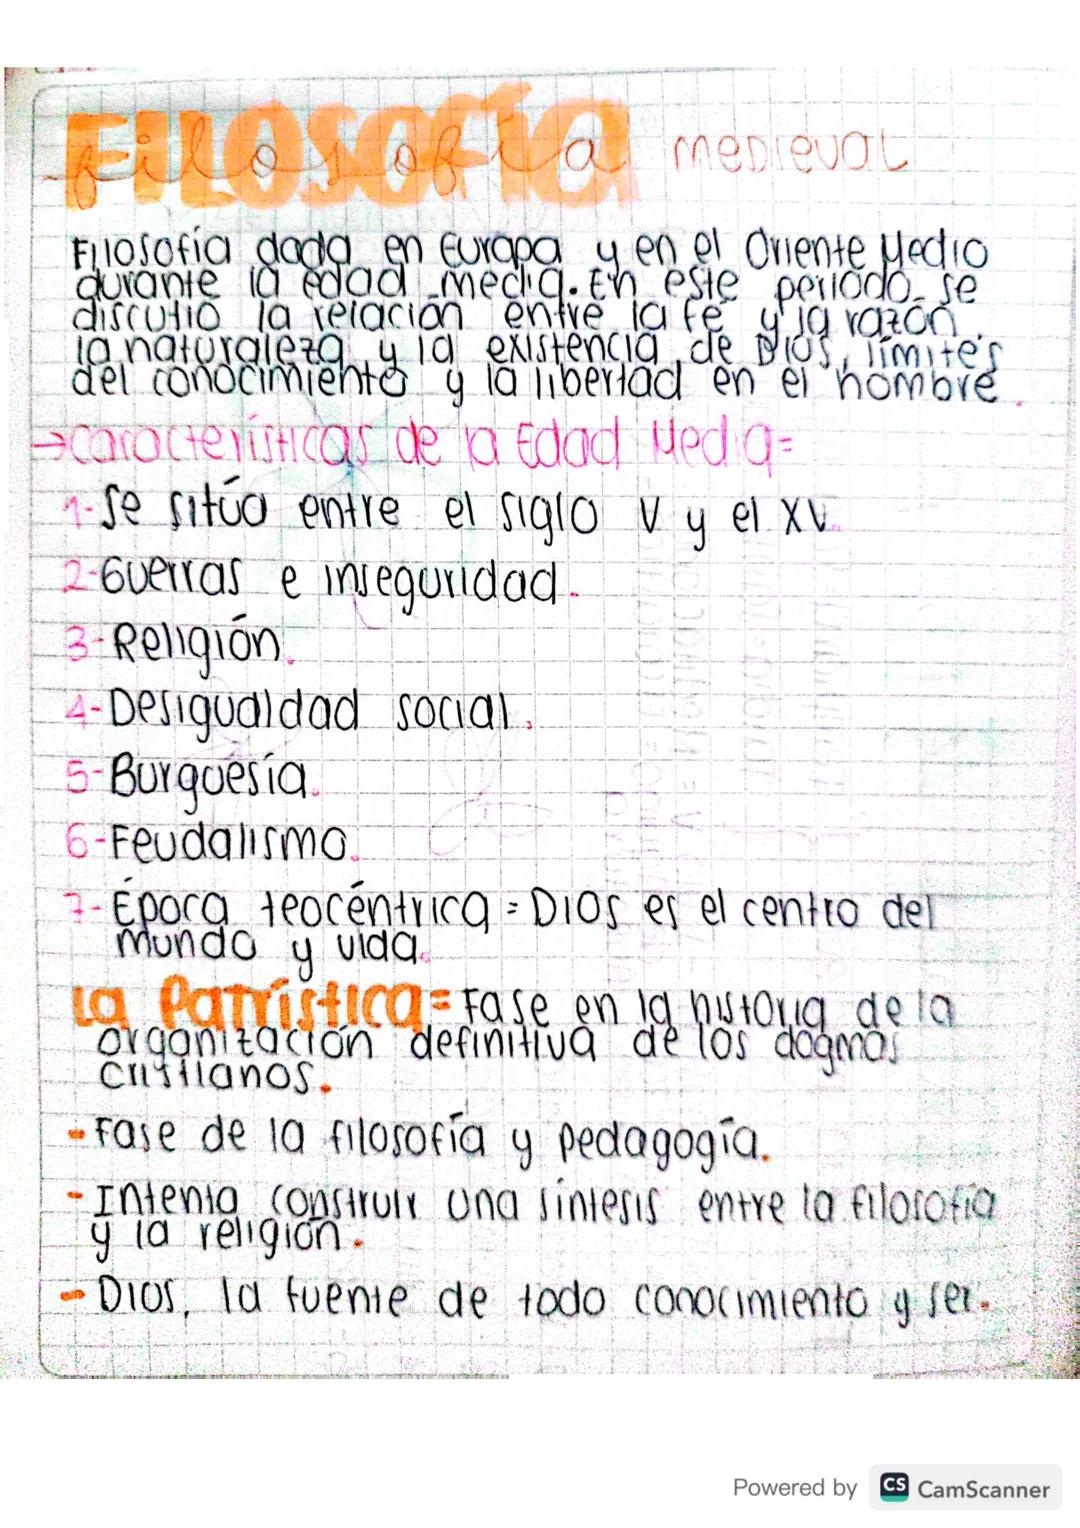 FILOSOFÍA
filosofía medieval
Filosofía dada en Europa y en el Oriente Medio
durante la edad media. En este periodo se
discutió la relación entre la fé y la razón,
la naturaleza y la existencia de Dios, límites
del conocimiento y la libertad en el hombre.
→ características de la Edad Media=
1-Se sitúa entre el siglo V y el XV.
2-Guerras e inseguridad.
3-Religión.
4-Desigualdad social.
5-Burguesía.
6-Feudalismo.
7-Época teocéntrica = Dios es el centro del
mundo y vida.
La Patrística= Fase en la historia de la
organización definitiva de los dogmas
cristianos.
- Fase de la filosofía y pedagogía.
- Intenta construir una síntesis entre la filosofía
y la religión.
- Dios, la fuente de todo conocimiento y ser.
Powered by CS CamScanner